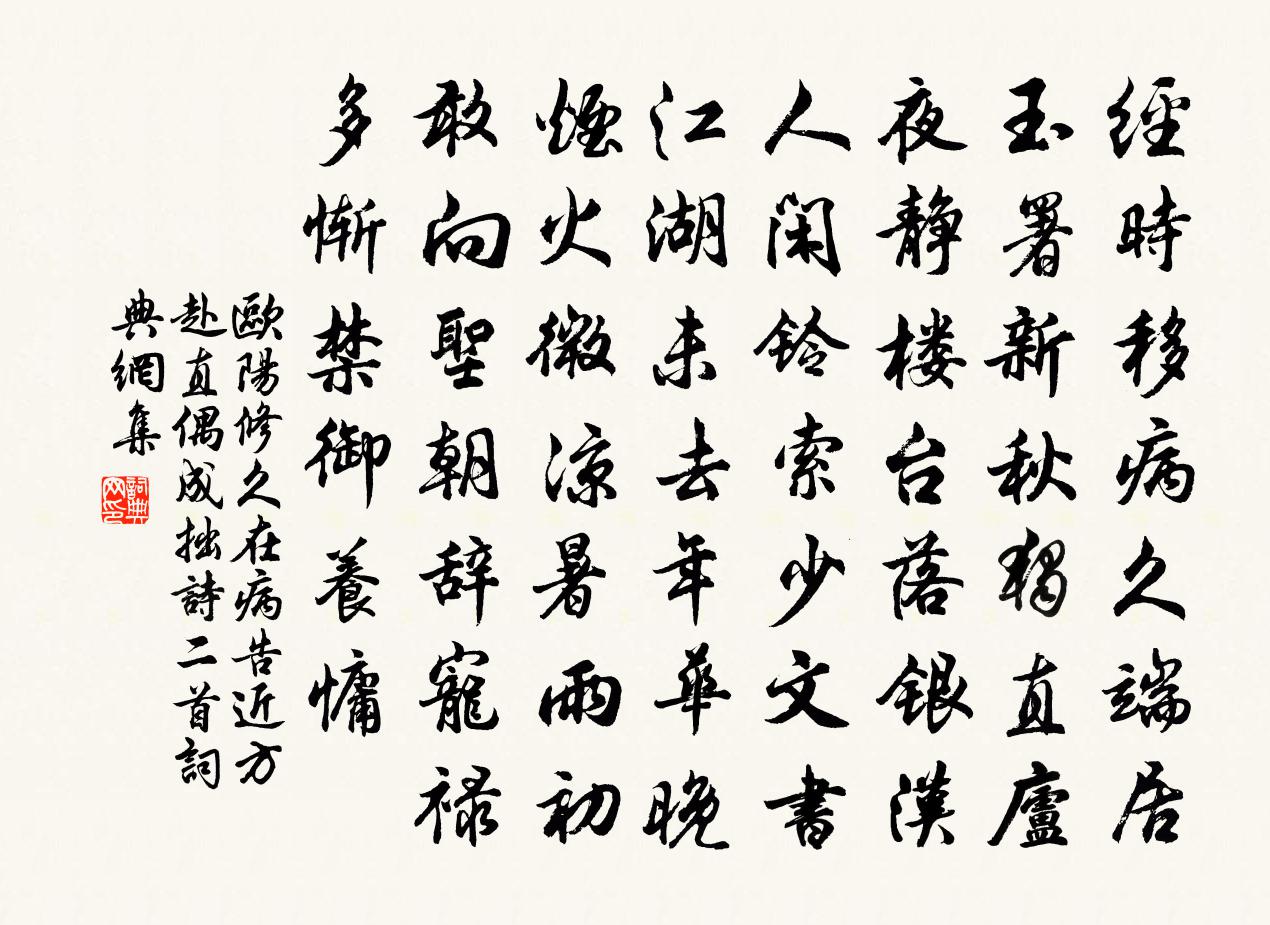 經時移病久端居
玉署新秋獨直廬
夜靜楼台落銀漢
人闲鈴索少文書
江湖未去年華晚
煙火微涼暑雨初
敢向聖朝辞寵禄
多慚禁御養慵
歐陽修久在病告近方
赴直偶成拙詩二首詞
典網集
詞典
网印